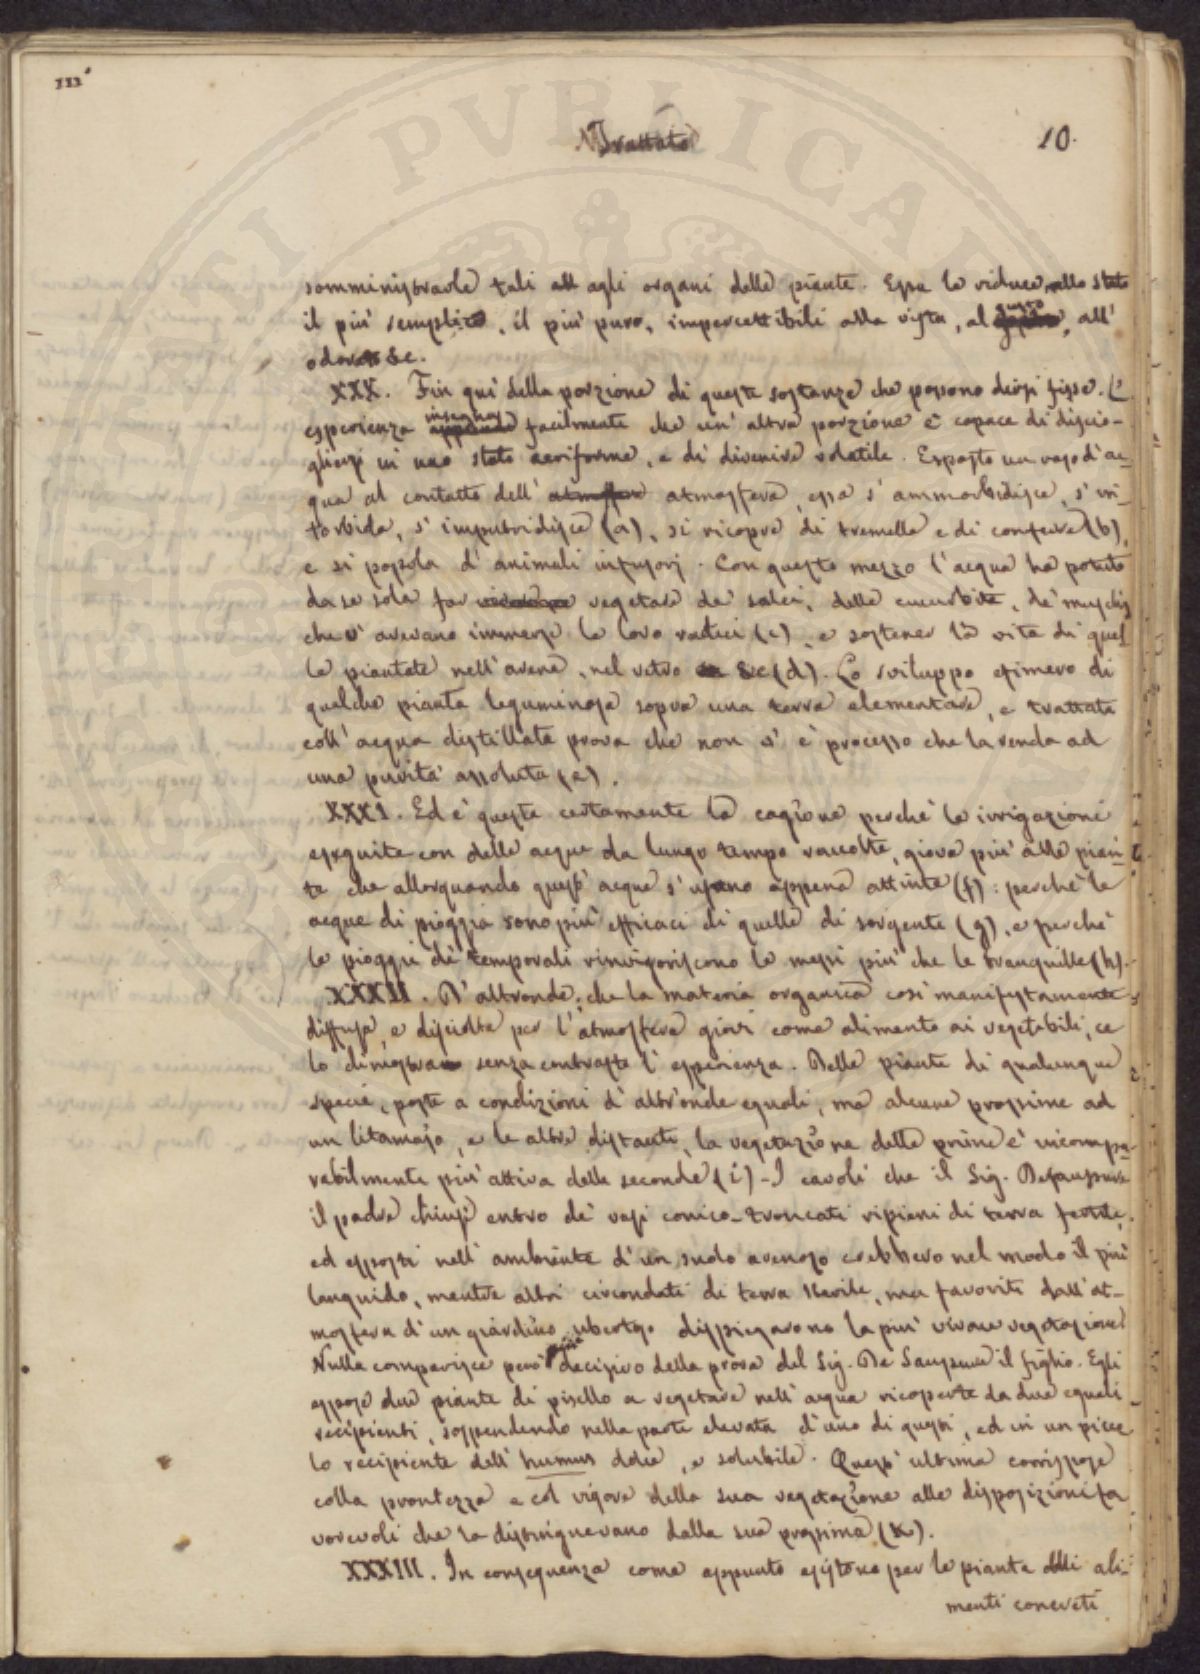 III
Trattato
10.
somministrarle tali agli organi delle piante. Essa le riduce allo stato
il più semplice, il più puro, impercettibili alla vista, al gusto, all'
odorato &c.
XXX. Fin qui della porzione di queste sostanze che possono dirsi fisse. L'
esperienza insegna facilmente che un' altra porzione è capace di discio-
gliersi in uno stato aeriforme, e di divenire volatile. Esposto un vaso d'ac-
qua al contatto dell' atmosfera, essa s' ammorbidisce, s' in-
torbida, s' imputridisce (a), si ricopre di tremelle e di conferve (b),
e si popola d' animali infusorj. Con questo mezzo l'acqua ha potuto
da se sola far vegetare de' salci, delle cucurbite, de' muschj
che v' avevano immerse le loro radici (c), e sostener la vita di quel-
le piantate nell' arena, nel vetro &c (d). Lo sviluppo efimero di
qualche pianta leguminosa sopra una terra elementare, e trattata
coll' acqua distillata prova che non v' è processo che la renda ad
una purità assoluta (e).
XXXI. Ed è questa certamente la cagione perchè le irrigazioni
eseguite con delle acque da lungo tempo raccolte, giova più alle pian-
te che allorquando quest' acque s' usano appena attinte (f): perchè le
acque di pioggia sono più efficaci di quelle di sorgente (g), e perchè
le pioggie de' temporali rinvigoriscono le messi più che le tranquille (h).
XXXII. D' altronde, che la materia organica così manifestamente
diffusa, e disciolta per l' atmosfera giovi come alimento ai vegetabili, ce
lo dimostra senza contrasto l' esperienza. Delle piante di qualunque
specie, poste a condizioni d' altronde eguali, ma alcune prossime ad
un litamajo, e le altre distanti, la vegetazione delle prime è incompa-
rabilmente più attiva delle seconde (i) - I cavoli che il Sig. Desaussure
il padre chiuse entro de' vasi conico-troncati ripieni di terra fertile,
ed esposti nell' ambiente d' un suolo arenoso crebbero nel modo il più
languido, mentre altri circondati di terra sterile, ma favoriti dall' at-
mosfera d' un giardino ubertoso dispiegarono la più vivace vegetazione.
Nulla comparisce però più decisivo della prova del Sig. De Saussure il figlio. Egli
espose due piante di pisello a vegetare nell' acqua ricoperte da due eguali
recipienti, sospendendo nella parte elevata d' uno di questi, ed in un picco
lo recipiente dell' humus dolce, e solubile. Quest' ultima corrispose
colla prontezza e col vigore della sua vegetazione alle disposizioni fa
vorevoli che la distinguevano dalla sua prossima (k).
XXXIII. In conseguenza come appunto esistono per le piante delli ali-
menti concreti